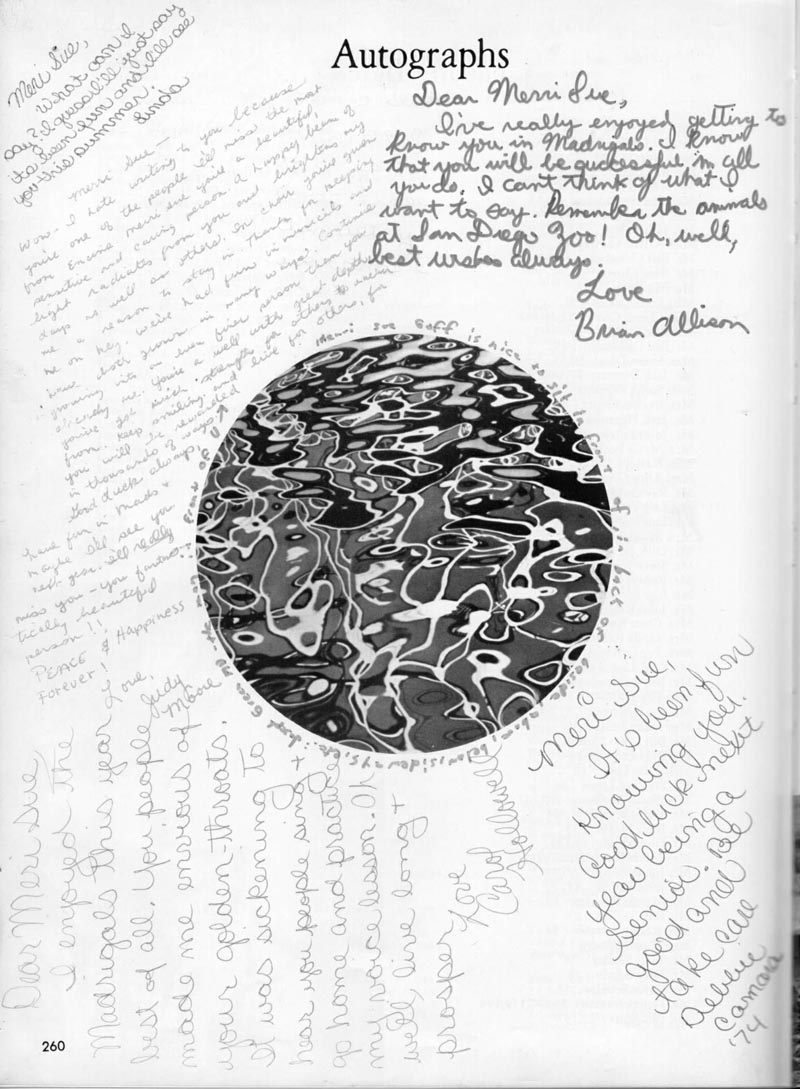 Autographs
Meri Sue,
What can I
say? I guess I'll just say
its been fun and I'll see
you this summer.
Linda
Dear Merri Sue,
I've really enjoyed getting to
know you in Madrigals. I know
that you will be successful in all
you do. I can't think of what I
want to say. Remember the animals
at San Diego Zoo! Oh, well,
best wishes always.
Love
Brian Allison
Merri Sue —
Wow - I hate writing to you because
you're one of the people I'll miss the most
from Encina. Merri Sue you're a beautiful,
sensitive and caring person. A happy beam of
light radiates from you and brightens my
days as well as others. In choir you've given
me a reason to stay in. Thanks for keeping
me on key. We've had fun in musicals and
have both grown in many ways. Continue
growing into an even finer person than you
already are. You're a well with great depth
you've got much strength for others to
from. Keep smiling and live for others, for
you will be rewarded
in thousands of ways!
Good luck always,
have fun in Mads +
maybe I'll see you
next year. I'll really
miss you - you fantas-
tically beautiful
person!!
PEACE & Happiness
Forever!
Love,
Judy
Moore
Merri Sue Goff is nice to sit in front of in back of beside above below sideways etc.
Dear Meri Sue
I enjoyed the
Madrigals this year
best of all. You people
made me envious of
your golden throats.
It was sickening to
hear you people sing +
go home and practice
my voice lesson. Oh
well, live long +
prosper
Love
Carol
Hollowell
Meri Sue,
It's been fun
knowing you.
Good luck next
year being a
Senior. Be
good and
take care
Debbie
Camara
'74
260